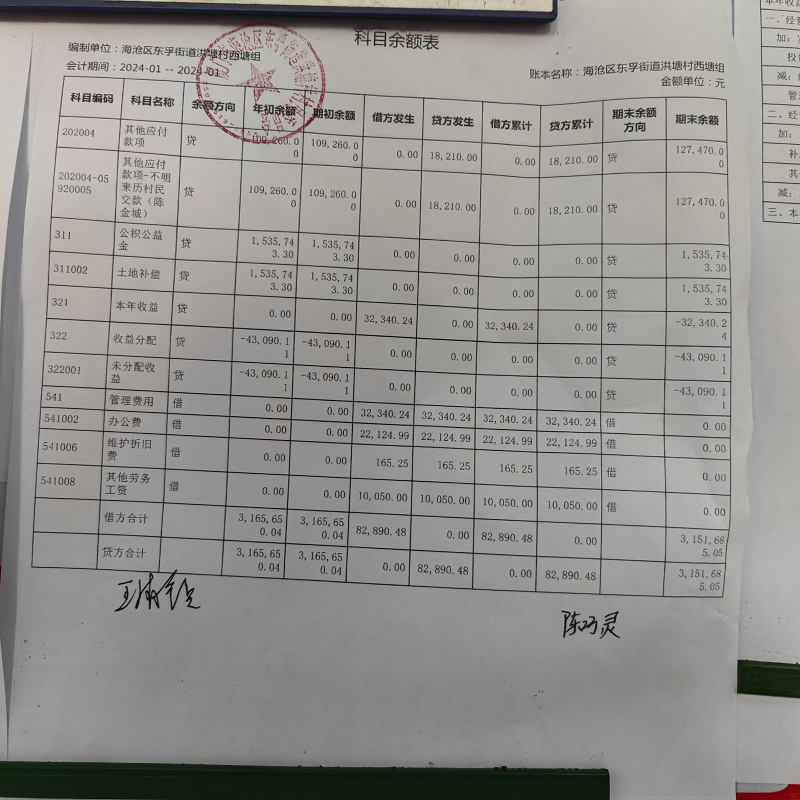 科目余额表
编制单位：海沧区东孚街道洪塘村西塘组
会计期间：2024-01 -- 2024-01
账本名称：海沧区东孚街道洪塘村西塘组
金额单位：元
科目编码 科目名称 余额方向 年初余额 期初余额 借方发生 贷方发生 借方累计 贷方累计 期末余额方向 期末余额
202004 其他应付款项 贷 109,260.00 109,260.00 0.00 18,210.00 0.00 18,210.00 贷 127,470.00
202004-05920005 其他应付款项-不明来历村民交款（陈金城） 贷 109,260.00 109,260.00 0.00 18,210.00 0.00 18,210.00 贷 127,470.00
311 公积公益金 贷 1,535,743.30 1,535,743.30 0.00 0.00 0.00 0.00 贷 1,535,743.30
311002 土地补偿 贷 1,535,743.30 1,535,743.30 0.00 0.00 0.00 0.00 贷 1,535,743.30
321 本年收益 贷 0.00 0.00 32,340.24 0.00 32,340.24 0.00 贷 -32,340.24
322 收益分配 贷 -43,090.11 -43,090.11 0.00 0.00 0.00 0.00 贷 -43,090.11
322001 未分配收益 贷 -43,090.11 -43,090.11 0.00 0.00 0.00 0.00 贷 -43,090.11
541 管理费用 借 0.00 0.00 32,340.24 32,340.24 32,340.24 32,340.24 借 0.00
541002 办公费 借 0.00 0.00 22,124.99 22,124.99 22,124.99 22,124.99 借 0.00
541006 维护折旧费 借 0.00 0.00 165.25 165.25 165.25 165.25 借 0.00
541008 其他劳务工资 借 0.00 0.00 10,050.00 10,050.00 10,050.00 10,050.00 借 0.00
借方合计 3,165,650.04 3,165,650.04 82,890.48 0.00 82,890.48 0.00 3,151,685.05
贷方合计 3,165,650.04 3,165,650.04 0.00 82,890.48 0.00 82,890.48 3,151,685.05
陈巧灵